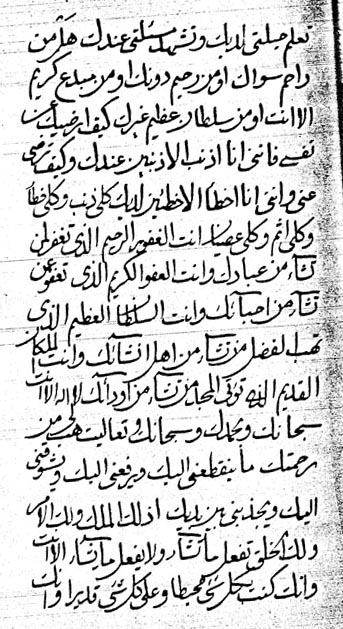 تعلم حيلتى لديك وتشهد مسئلتى عندك هل من
راحم سواك او من رحيم دونك او من مبدع كريم
الا انت او من سلطان عظيم غيرك كيف ارضيك عن
نفسى فاننى انا اذنب الاذنبين عندك وكيف ترضى
عنى واننى انا اخطا الاخطئين لديك كلى ذنب وكلى خطا
وكلى اثم وكلى عصيان انت الغفور الرحيم الذى تغفر لمن
تشاء من عبادك وانت العفو الكريم الذى تعفو عن
تشاء من احبائك وانت السلطان العظيم الذى
تهب الفضل من تشاء من اهل انشائك وانت المليك
القديم الذى توتى المجد من تشاء من اودائك لا اله الا انت
سبحانك وبحمدك وسبحانك وتعاليت هب من
رحمتك ما ينقطعنى اليك ويرفعنى اليك ويشوقنى
اليك ويجذبنى بين يديك اذ لك الملك ولك الامر
ولك الخلق تفعل ما تشاء ولا يفعل ما تشاء الا انت
وانك كنت بكل شىء محيطا وعلى كل شىء قديرا وانك